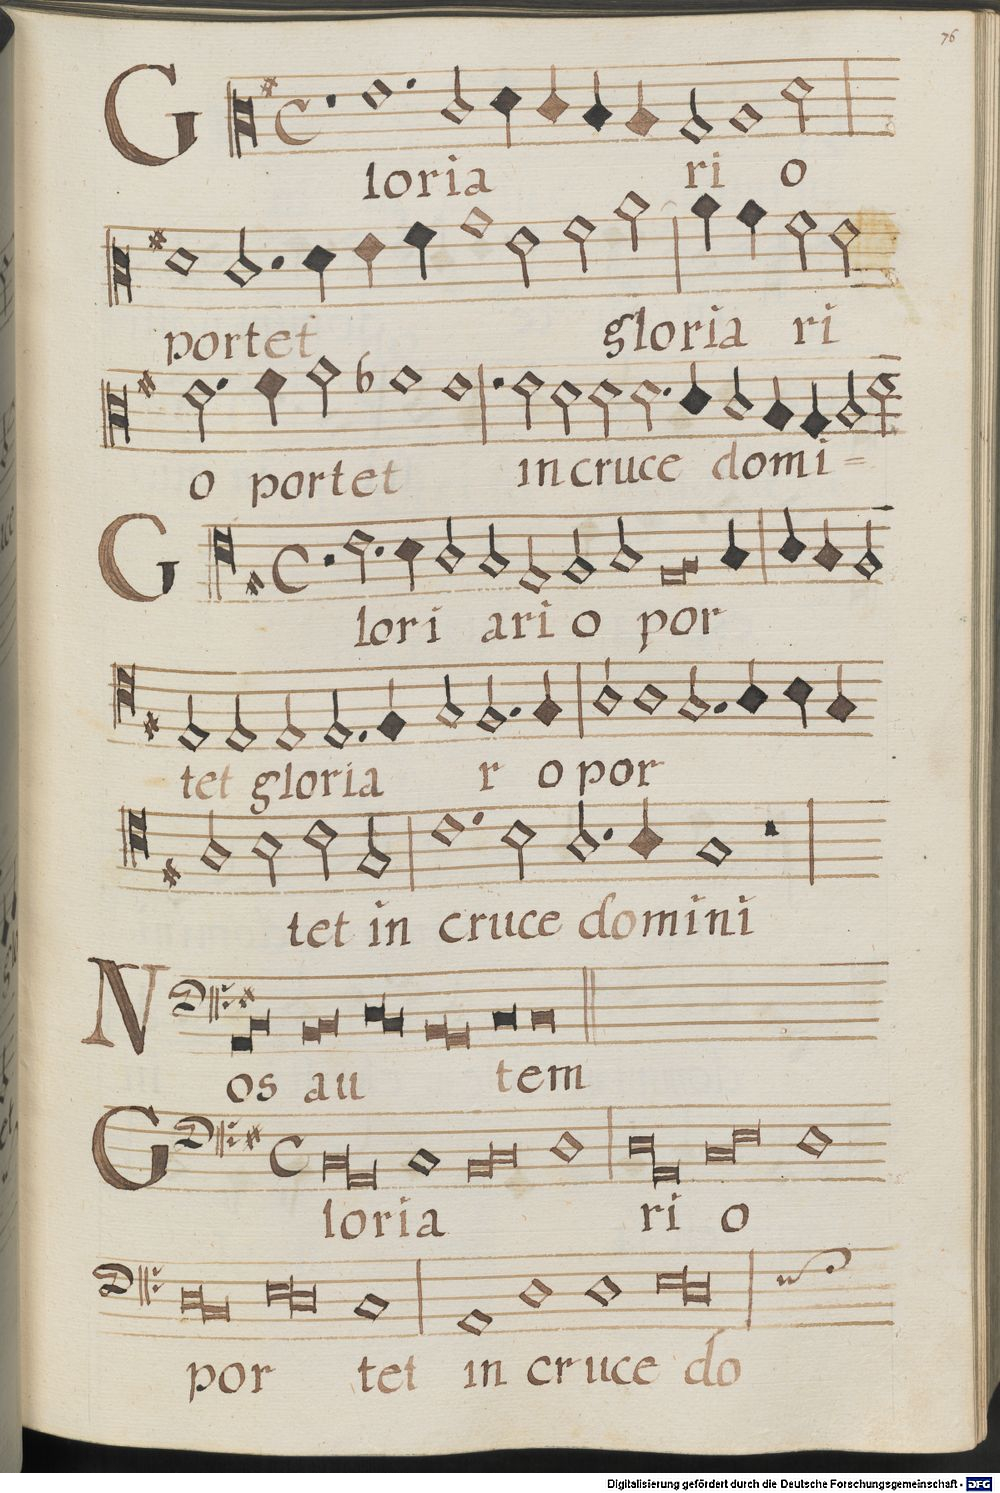 76
Gloria ri o
portet gloria ri
o portet in cruce domi=
Glori ari o por
tet gloria r o por
tet in cruce domini
Nos au tem
Gloria ri o
por tet in cruce do
Digitalisierung gefördert durch die Deutsche Forschungsgemeinschaft - DFG